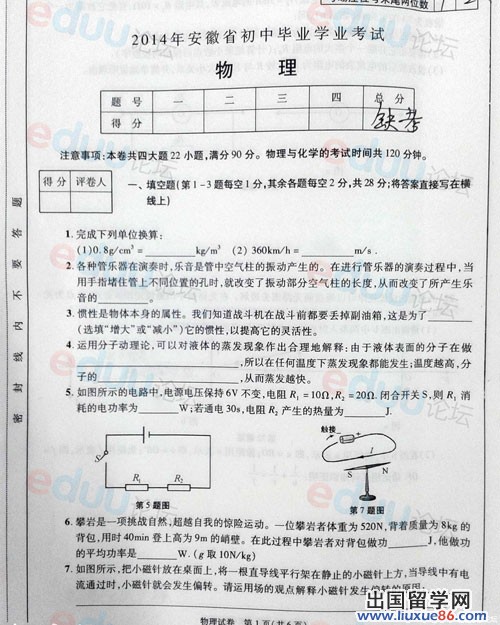 2014年安徽省初中毕业学业考试
物 理
题 号 一 二 三 四 总 分
得 分 缺考
注意事项:本卷共四大题22小题,满分90分。物理与化学的考试时间共120分钟。
得 分 评卷人
一、填空题(第1-3题每空1分,其余各题每空2分,共28分;将答案直接写在横
线上)
1. 完成下列单位换算:
(1)0.8g/cm³=________kg/m³ (2) 360km/h=________m/s.
2. 各种管乐器在演奏时,乐音是管中空气柱的振动产生的。在进行管乐器的演奏过程中,当
用手指堵住管上不同位置的孔时,就改变了振动部分空气柱的长度,从而改变了所产生乐
音的________。
3. 惯性是物体本身的属性。我们知道战斗机在战斗前都要丢掉副油箱,这是为了________
(选填“增大”或“减小”)它的惯性,以提高它的灵活性。
4. 运用分子动论,可以对液体的蒸发现象作出合理地解释:由于液体表面的分子在做
________,所以在任何温度下蒸发现象都能发生;温度越高,分
子的________,从而蒸发越快。
5. 如图所示的电路中,电源电压保持6V不变,电阻R₁=10Ω,R₂=20Ω.闭合开关S,则R₁消
耗的电功率为________W;若通电30s,电阻R₂产生的热量为________J.
S
R₁ R₂
第5题图
触接
I
S N
第7题图
6. 攀岩是一项挑战自然,超越自我的惊险运动。一位攀岩者体重为520N,背着质量为8kg的
背包,用时40min登上高为9m的峭壁。在此过程中攀岩者对背包做功________J,他做功
的平均功率是________W.(g取10N/kg)
7. 如图所示,把小磁针放在桌面上,将一根直导线平行架在静止的小磁针上方,当导线中有电
流通过时,小磁针就会发生偏转。请运用场的观点解释小磁针发生偏转的原因:
物理试卷 第1页(共6页)
密 封 线 内 不 要 答 题
eduu论坛
出国留学网
www.liuxue86.com